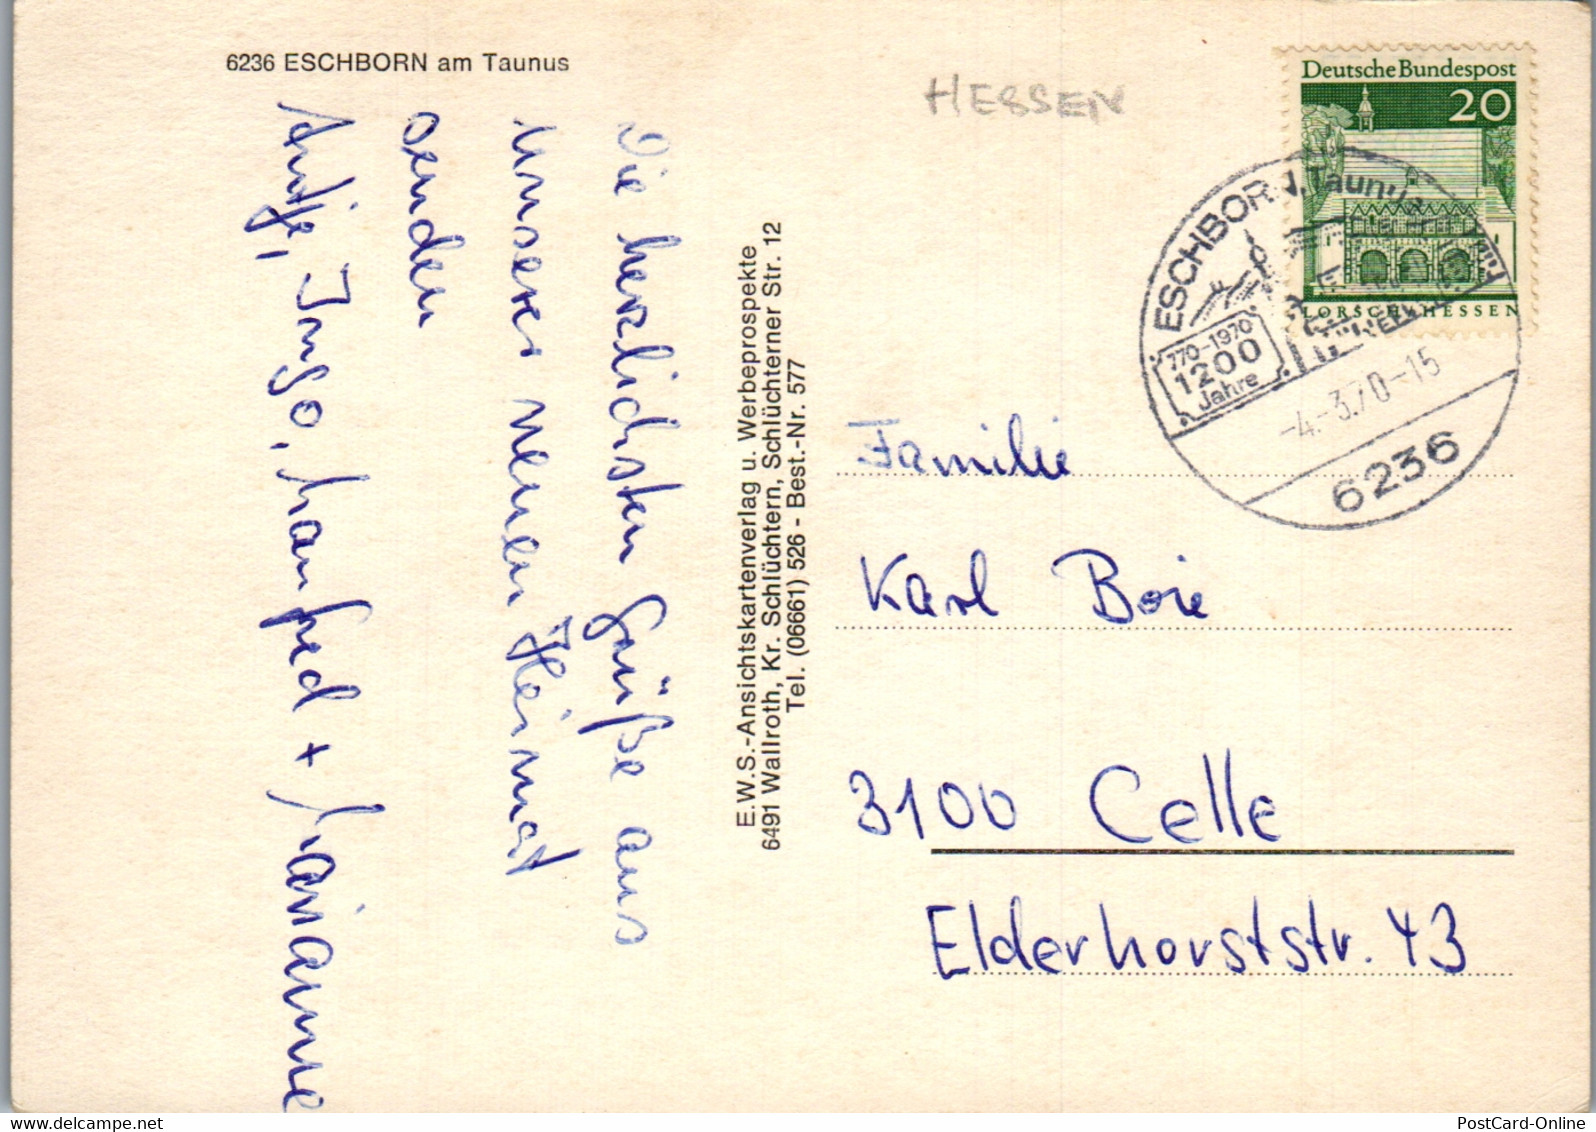 6236 ESCHBORN am Taunus
HESSEN
Deutsche Bundespost
20
LORSCH/HESSEN
ESCHBORN, Taunus
770-1970
1200
Jahre
-4.-3.70-15
6236
Die herzlichsten Grüße aus
unserer neuen Heimat
senden
Antje, Ingo, Manfred + Marianne
E.W.S.-Ansichtskartenverlag u. Werbeprospekte
6491 Wallroth, Kr. Schlüchtern, Schlüchterner Str. 12
Tel. (06661) 526 - Best.-Nr. 577
Familie
Karl Boie
3100 Celle
Elderhorststr. 43
PostCard-Online